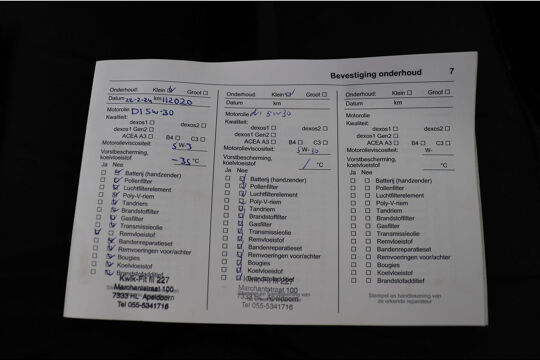 Bevestiging onderhoud 7
Onderhoud: Klein Groot
Datum 22-2-24 km 112020
Motorolie D1 5w-30
Kwaliteit:
dexos1 dexos2
dexos1 Gen2 B4 C3
ACEA A3
Motorolieviscositeit: 5 W-3
Vorstbescherming,
koelvloeistof -35 °C
Ja Nee
Batterij (handzender)
Pollenfilter
Luchtfilterelement
Poly-V-riem
Tandriem
Brandstoffilter
Gasfilter
Transmissieolie
Remvloeistof
Bandenreparatieset
Remvoeringen voor/achter
Bougies
Koelvloeistof
Brandstofadditief
Kwik-Fit fil 227
Marchantstraat 100
7333 HL Apeldoorn
Tel 055-5341716
Onderhoud: Klein Groot
Datum km
Motorolie D1 5W30
Kwaliteit:
dexos1 dexos2
dexos1 Gen2
ACEA A3 B4 C3
Motorolieviscositeit: 5 W- 30
Vorstbescherming,
koelvloeistof °C
Ja Nee
Batterij (handzender)
Pollenfilter
Luchtfilterelement
Poly-V-riem
Tandriem
Brandstoffilter
Gasfilter
Transmissieolie
Remvloeistof
Bandenreparatieset
Remvoeringen voor/achter
Bougies
Koelvloeistof
Brandstofadditief
Kwik-Fit fil 227
Marchantstraat 100
7333 HL Apeldoorn
Tel 055-5341716
Onderhoud: Klein Groot
Datum km
Motorolie
Kwaliteit:
dexos1 dexos2
dexos1 Gen2
ACEA A3 B4 C3
Motorolieviscositeit: W-
Vorstbescherming,
koelvloeistof °C
Ja Nee
Batterij (handzender)
Pollenfilter
Luchtfilterelement
Poly-V-riem
Tandriem
Brandstoffilter
Gasfilter
Transmissieolie
Remvloeistof
Bandenreparatieset
Remvoeringen voor/achter
Bougies
Koelvloeistof
Brandstofadditief
Stempel en handtekening van
de erkende reparateur